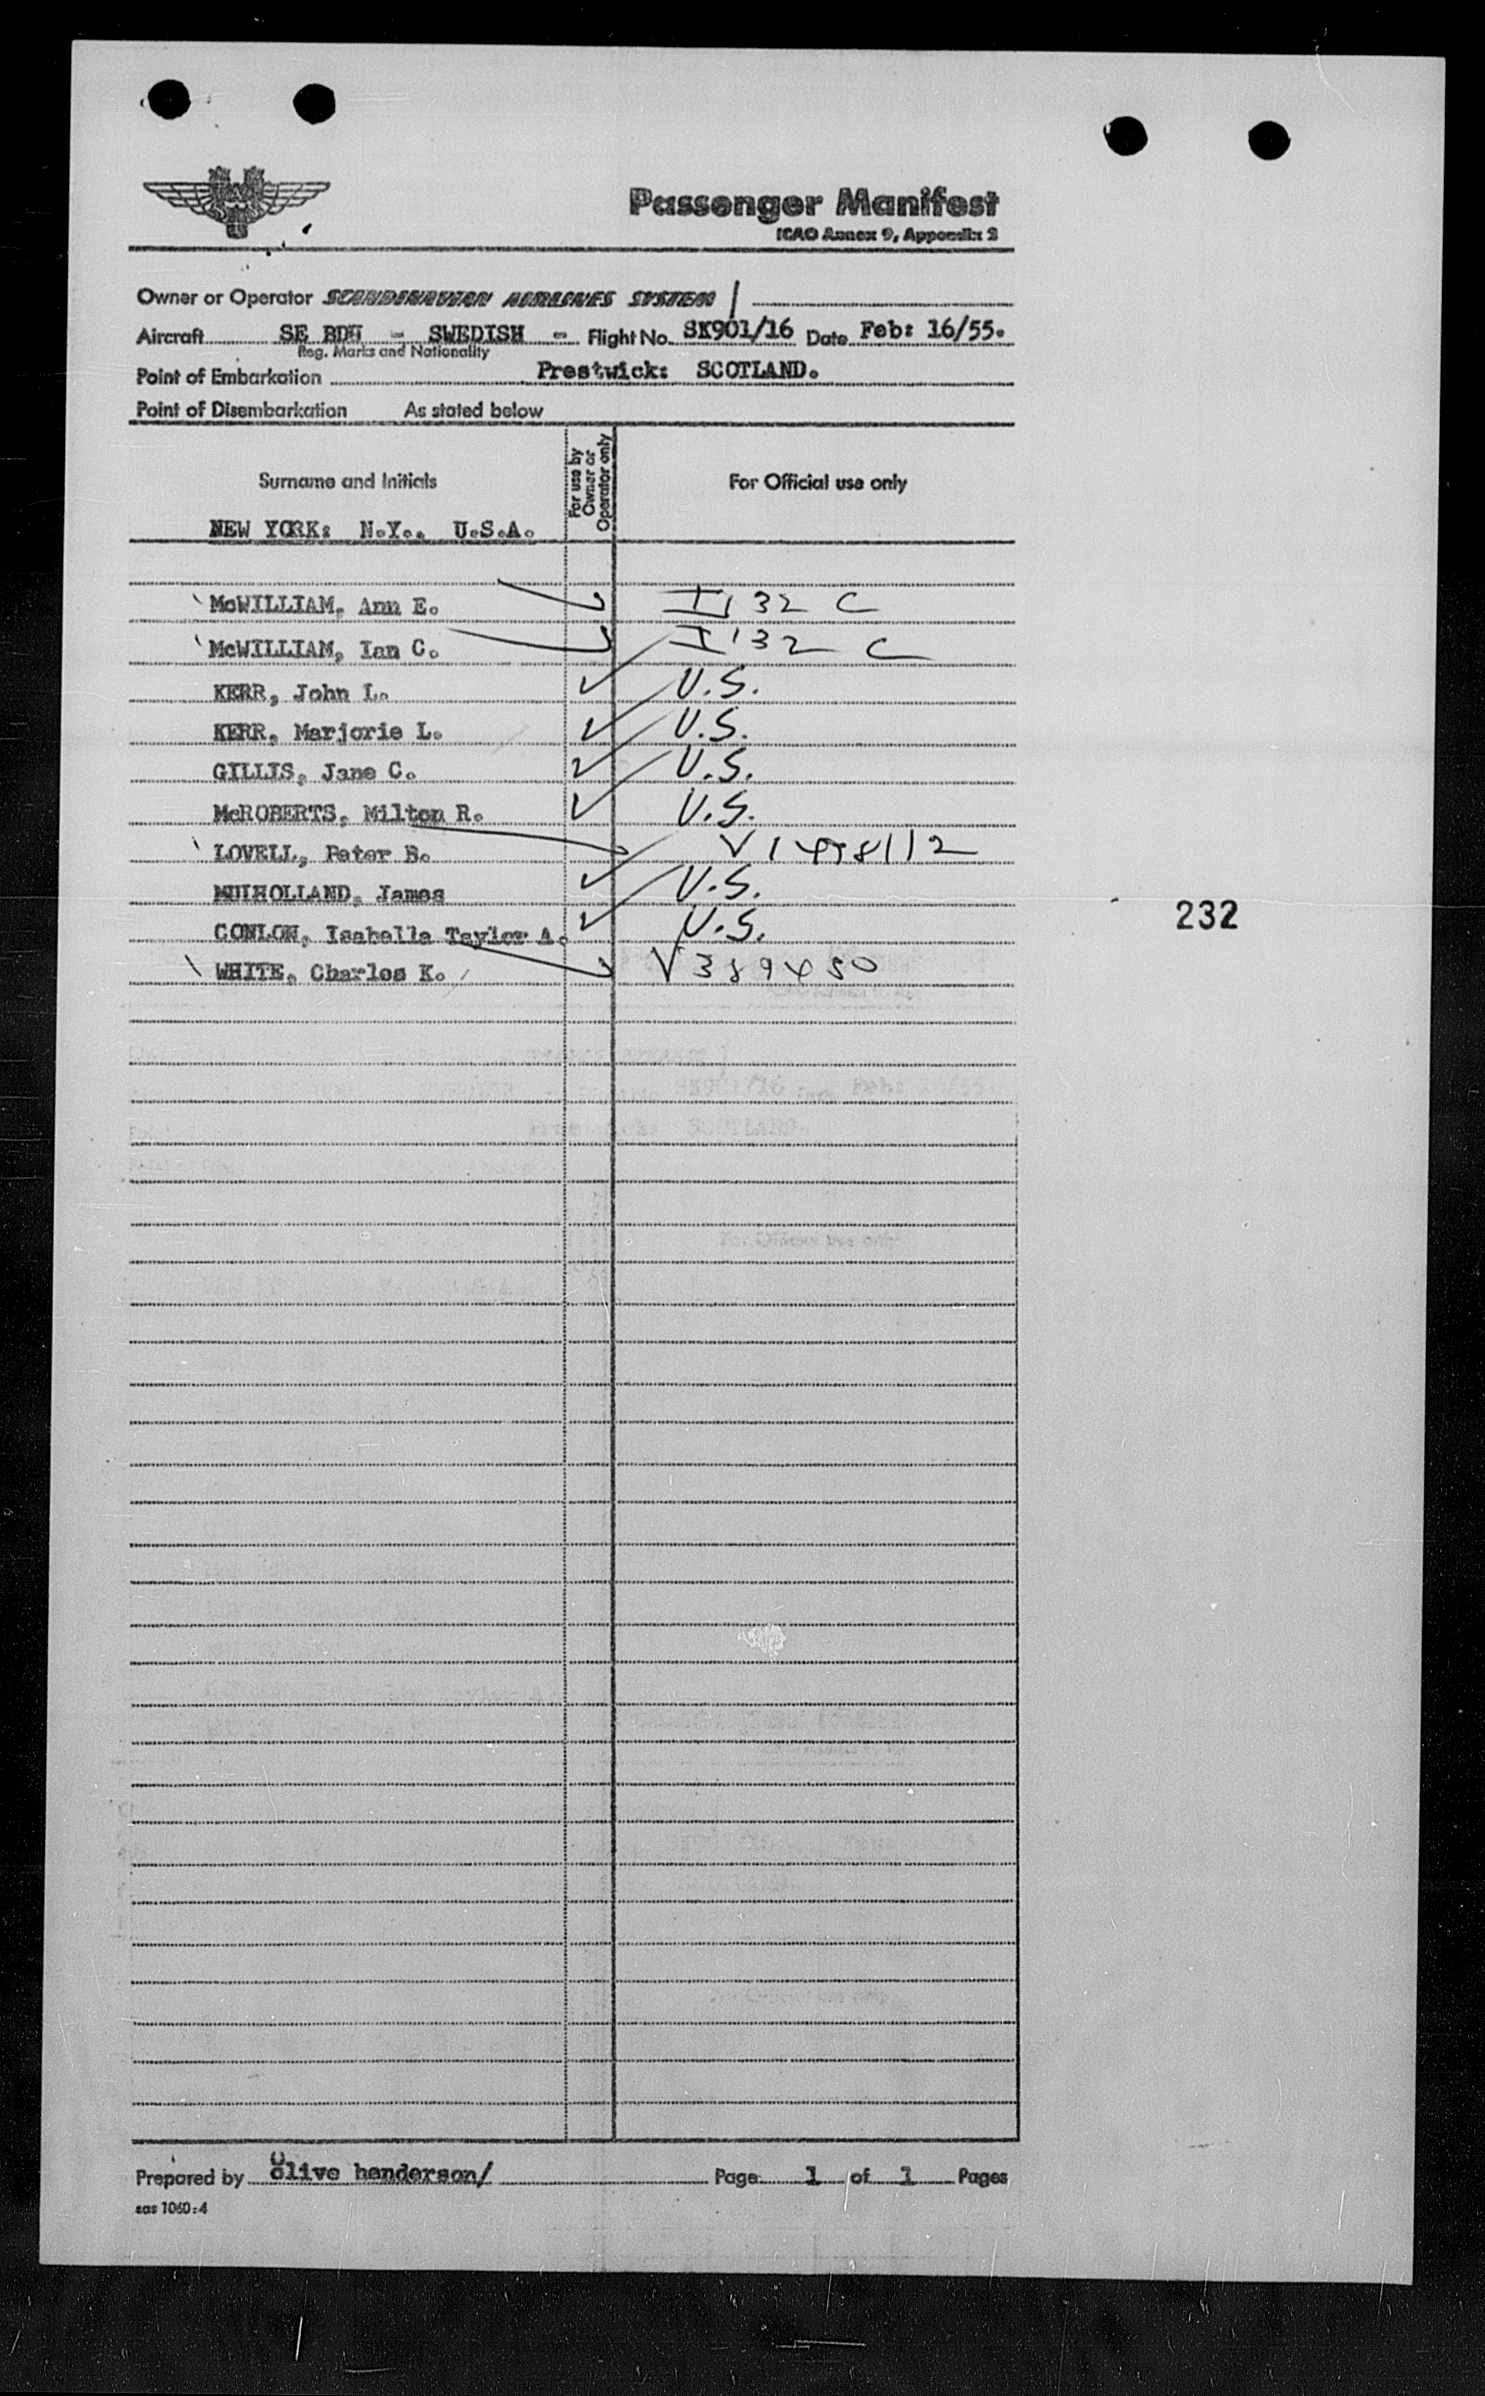 SAS
Passenger Manifest
ICAO Annex 9, Appendix 2
Owner or Operator SCANDINAVIAN AIRLINES SYSTEM /
Aircraft SE BDU - SWEDISH - Flight No. SK901/16 Date Feb: 16/55.
Reg. Marks and Nationality
Point of Embarkation Prestwick: SCOTLAND.
Point of Disembarkation As stated below
Surname and Initials For use by Owner or Operator only For Official use only
NEW YORK: N.Y., U.S.A.
McWILLIAM, Ann E. I 132 C
McWILLIAM, Ian C. I 132 C
KERR, John L. ✓ U.S.
KERR, Marjorie L. ✓ U.S.
GILLIS, Jane C. ✓ U.S.
McROBERTS, Milton R. ✓ U.S.
LOVELL, Peter B. V 1498112
MUIHOLLAND, James ✓ U.S.
CONLON, Isabella Taylor A. ✓ U.S.
WHITE, Charles K. V 389450
232
Prepared by Olive henderson/ Page 1 of 1 Pages
sas 1060:4